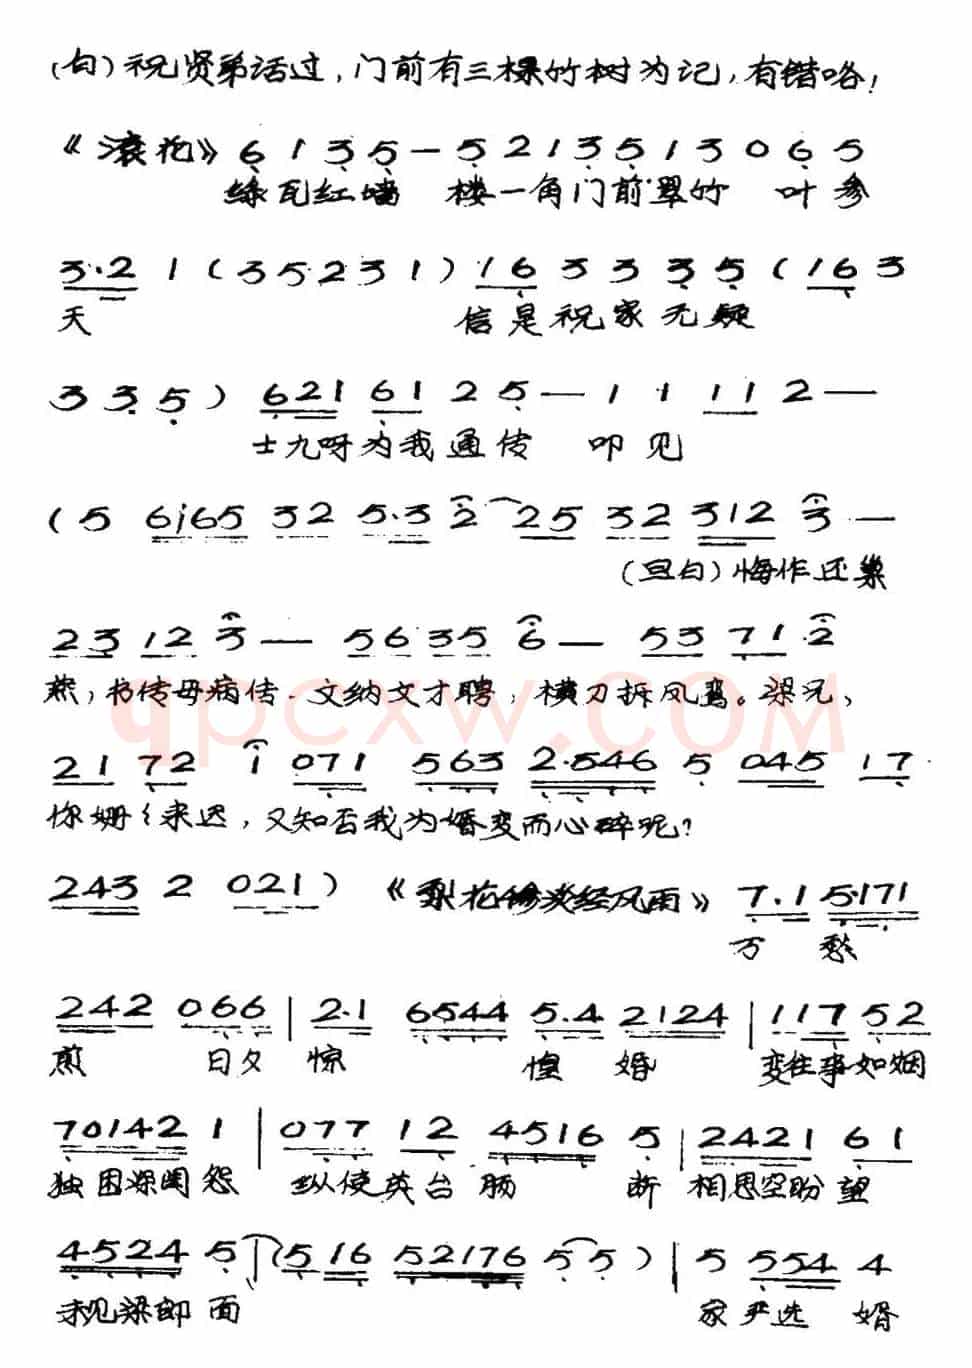 (白)祝贤弟话过,门前有三棵竹树为记,有错咯!
《滚花》6 1 3 5 — 5 2 1 3 5 1 3 0 6 5
绿瓦红墙 楼一角门前翠竹 叶参
3·2 1 (3 5 2 3 1) 16 3 3 3 5 (16 3
天 信是祝家无疑
3 3 5) 621 61 2 5 — 1 1 11 2 —
士九呀为我通传 叩见
(5 6i65 32 5·3 2 25 32 312 3 —
(旦白)悔作还巢
23 12 3 — 56 35 6 — 53 71·2
燕,书传母病传.文纳文才聘,横刀拆凤鸾。梁兄、
21 72 1 071 563 2·546 5 045 17
你姗〻来迟,又知否我为婚变而心碎呢?
243 2 021) 《梨花惨淡经风雨》 7·1 5·171
万 愁
242 066 | 2·1 6544 5·4 2124 | 117 52
煎 日夕 惊 惶 婚 变往事如烟
70142 1 | 077 12 4516 5 | 2421 61
独困深闺怨 纵使英台肠 断 相思空盼望
4524 5 | (5 16 52176 5 5) | 5 554 4
未见梁郎 面 家严选 婚
qpcxw.COM